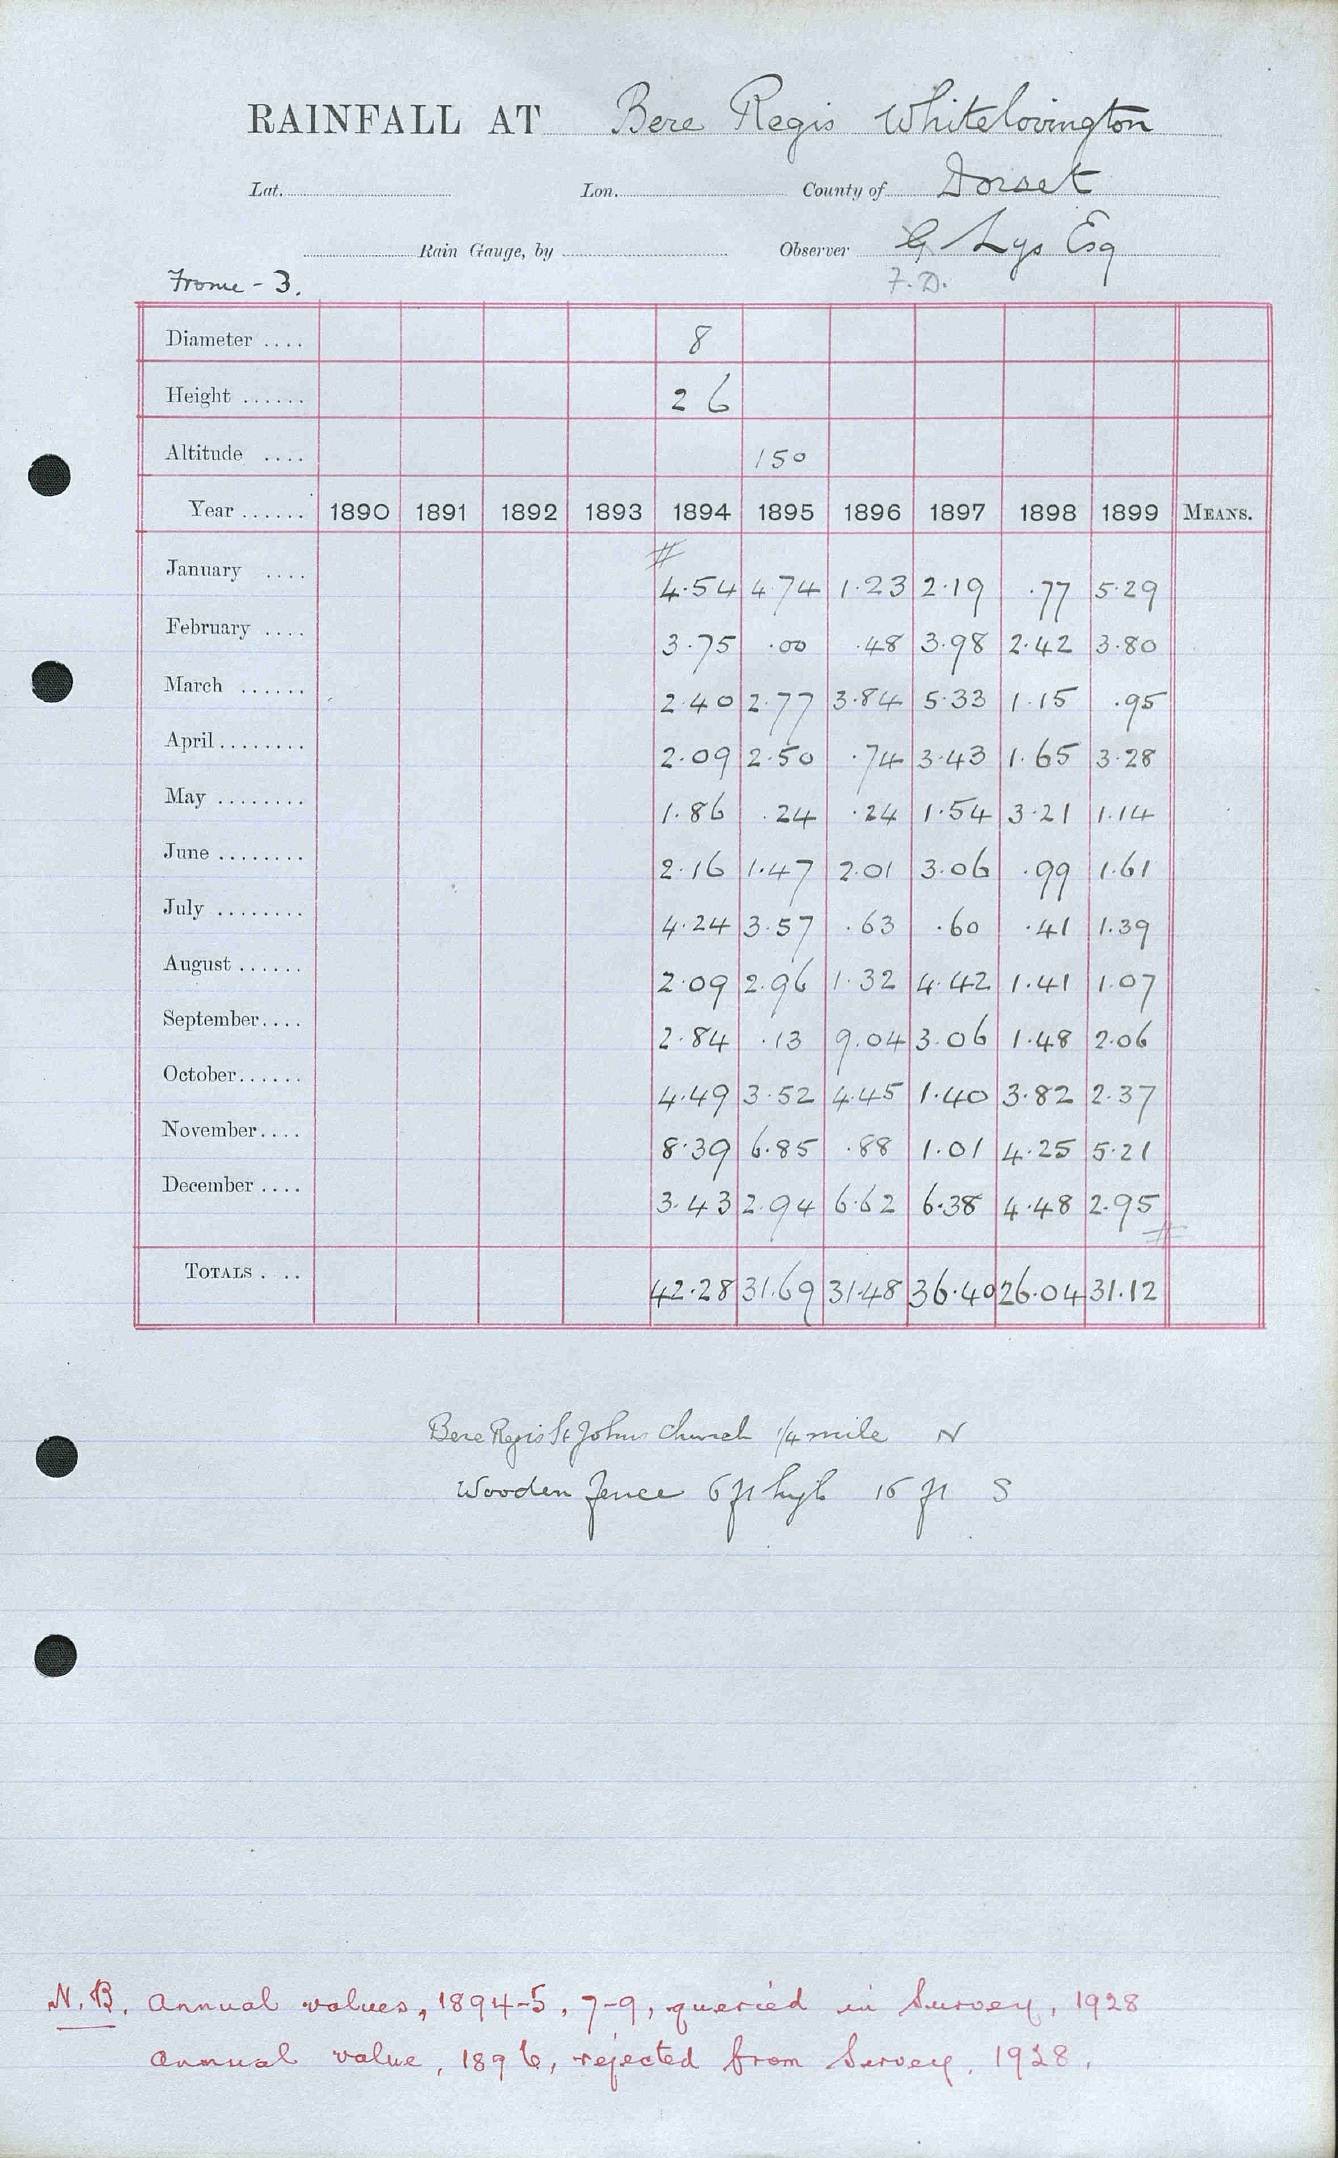 RAINFALL AT Bere Regis Whitelovington
Lat. Lon. County of Dorset
Rain Gauge, by Observer G Lys Esq
Frome - 3. F. D.
Diameter .... 8
Height ...... 2 6
Altitude .... 150
Year ...... 1890 1891 1892 1893 1894 1895 1896 1897 1898 1899 MEANS.
#
January .... 4.54 4.74 1.23 2.19 .77 5.29
February .... 3.75 .00 .48 3.98 2.42 3.80
March ...... 2.40 2.77 3.84 5.33 1.15 .95
April ........ 2.09 2.50 .74 3.43 1.65 3.28
May ........ 1.86 .24 .24 1.54 3.21 1.14
June ........ 2.16 1.47 2.01 3.06 .99 1.61
July ........ 4.24 3.57 .63 .60 .41 1.39
August ...... 2.09 2.96 1.32 4.42 1.41 1.07
September.... 2.84 .13 9.04 3.06 1.48 2.06
October...... 4.49 3.52 4.45 1.40 3.82 2.37
November.... 8.39 6.85 .88 1.01 4.25 5.21
December .... 3.43 2.94 6.62 6.38 4.48 2.95
#
TOTALS .... 42.28 31.69 31.48 36.40 26.04 31.12
Bere Regis St Johns Church 1/4 mile N
Wooden fence 6 ft high 16 ft S
N.B. Annual values, 1894-5, 7-9, queried in Survey, 1928
Annual value, 1896, rejected from Survey, 1928.